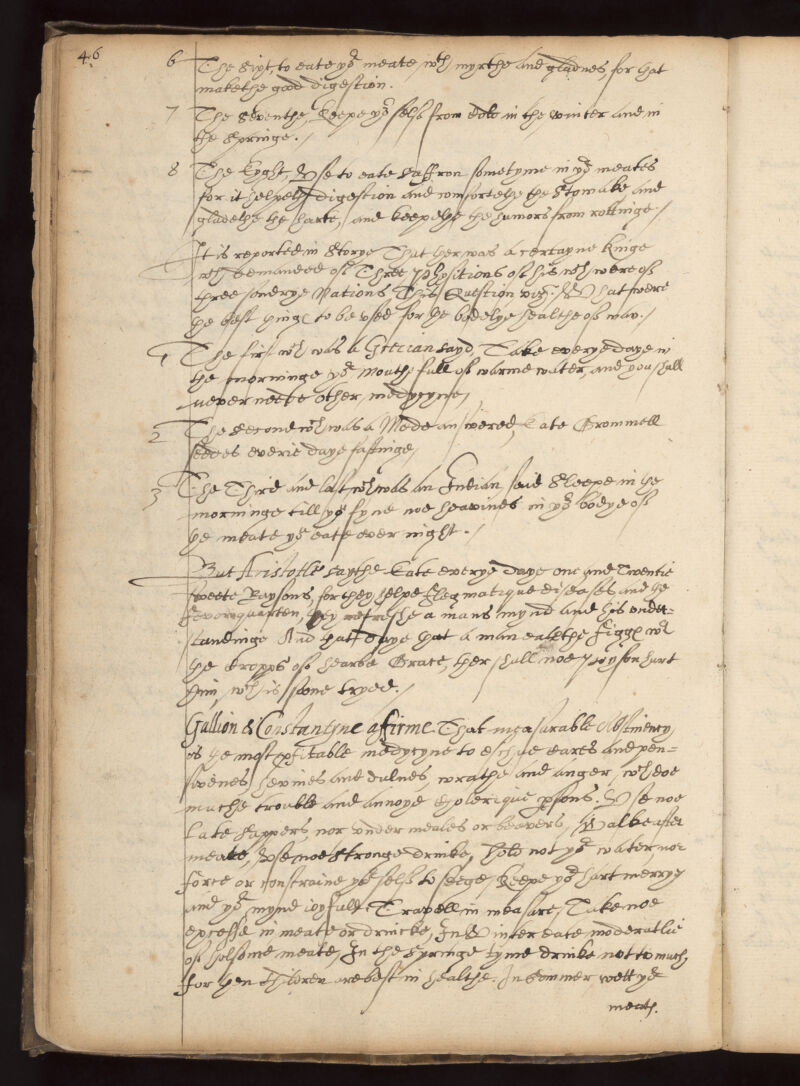 46
6 The Sixt, to eate yor meate wth myrthe and gladnes, for that
makethe good digestion.
7 The Seventhe, Keepe yor selfe from cold in the winter and in
the Springe./
8 The Eyght, Use to eate Saffron sometyme in yor meates
for it helpeth digestion and comfortethe the Stomake and
gladethe the harte, and keepethe the humors from rottinge./
It is reported in Storye That ther was a certayne Kinge
wch demanded of Three phisitions of his wch were of
three sondrye Nations This Question viz. What were
the best thinge to be used for the bodelye healthe of man./
1 The first wch was a Grecian sayd, Take everye daye in
the morninge yor mouthe full of warme water, and you shall
never neede other medycyne/
2 The Second wch was a Mede answered, Eate Grommell
seedes everie daye fastinge/
3 The Third and last wch was an Indian said Sleepe in the
morninge till you fynd noe heavines in yor bodye of
the meate you eate over night./
But Aristotle saythe Eate everye daye one and Twentie
sweete Raysons, for they helpe flegmatique diseases and the
fevor quarten, they refreshe a mans mynd and his under-
standinge And that daye that a man eatethe figge wth
the cropps of hearbe Grace, ther shall noe poyson hurt
him, wch is soone tryed./
Gallion & Constantyne affirme That measurable Abstinency
is the most pfitable medycyne to eschue cares and pen-
sivenes, hevines and dulnes, wrathe and anger, wch doe
muche trouble and annoye Cholerique psons. Use noe
Late Suppers, nor under meales or beevers, Walke after
meate, Use noe Stronge drinke, Hold not yor water, nor
force or constraine yor selfe to seege, Keepe yor hart merrye
and yor mynd ioyfull, Travell in measure, Take noe
excesse in meate or drincke, In Winter eate moderatlie
of holsome meate, In the Springe tyme drinke not to much,
for then Children are best in healthe. In Sommer wett yor
meats.